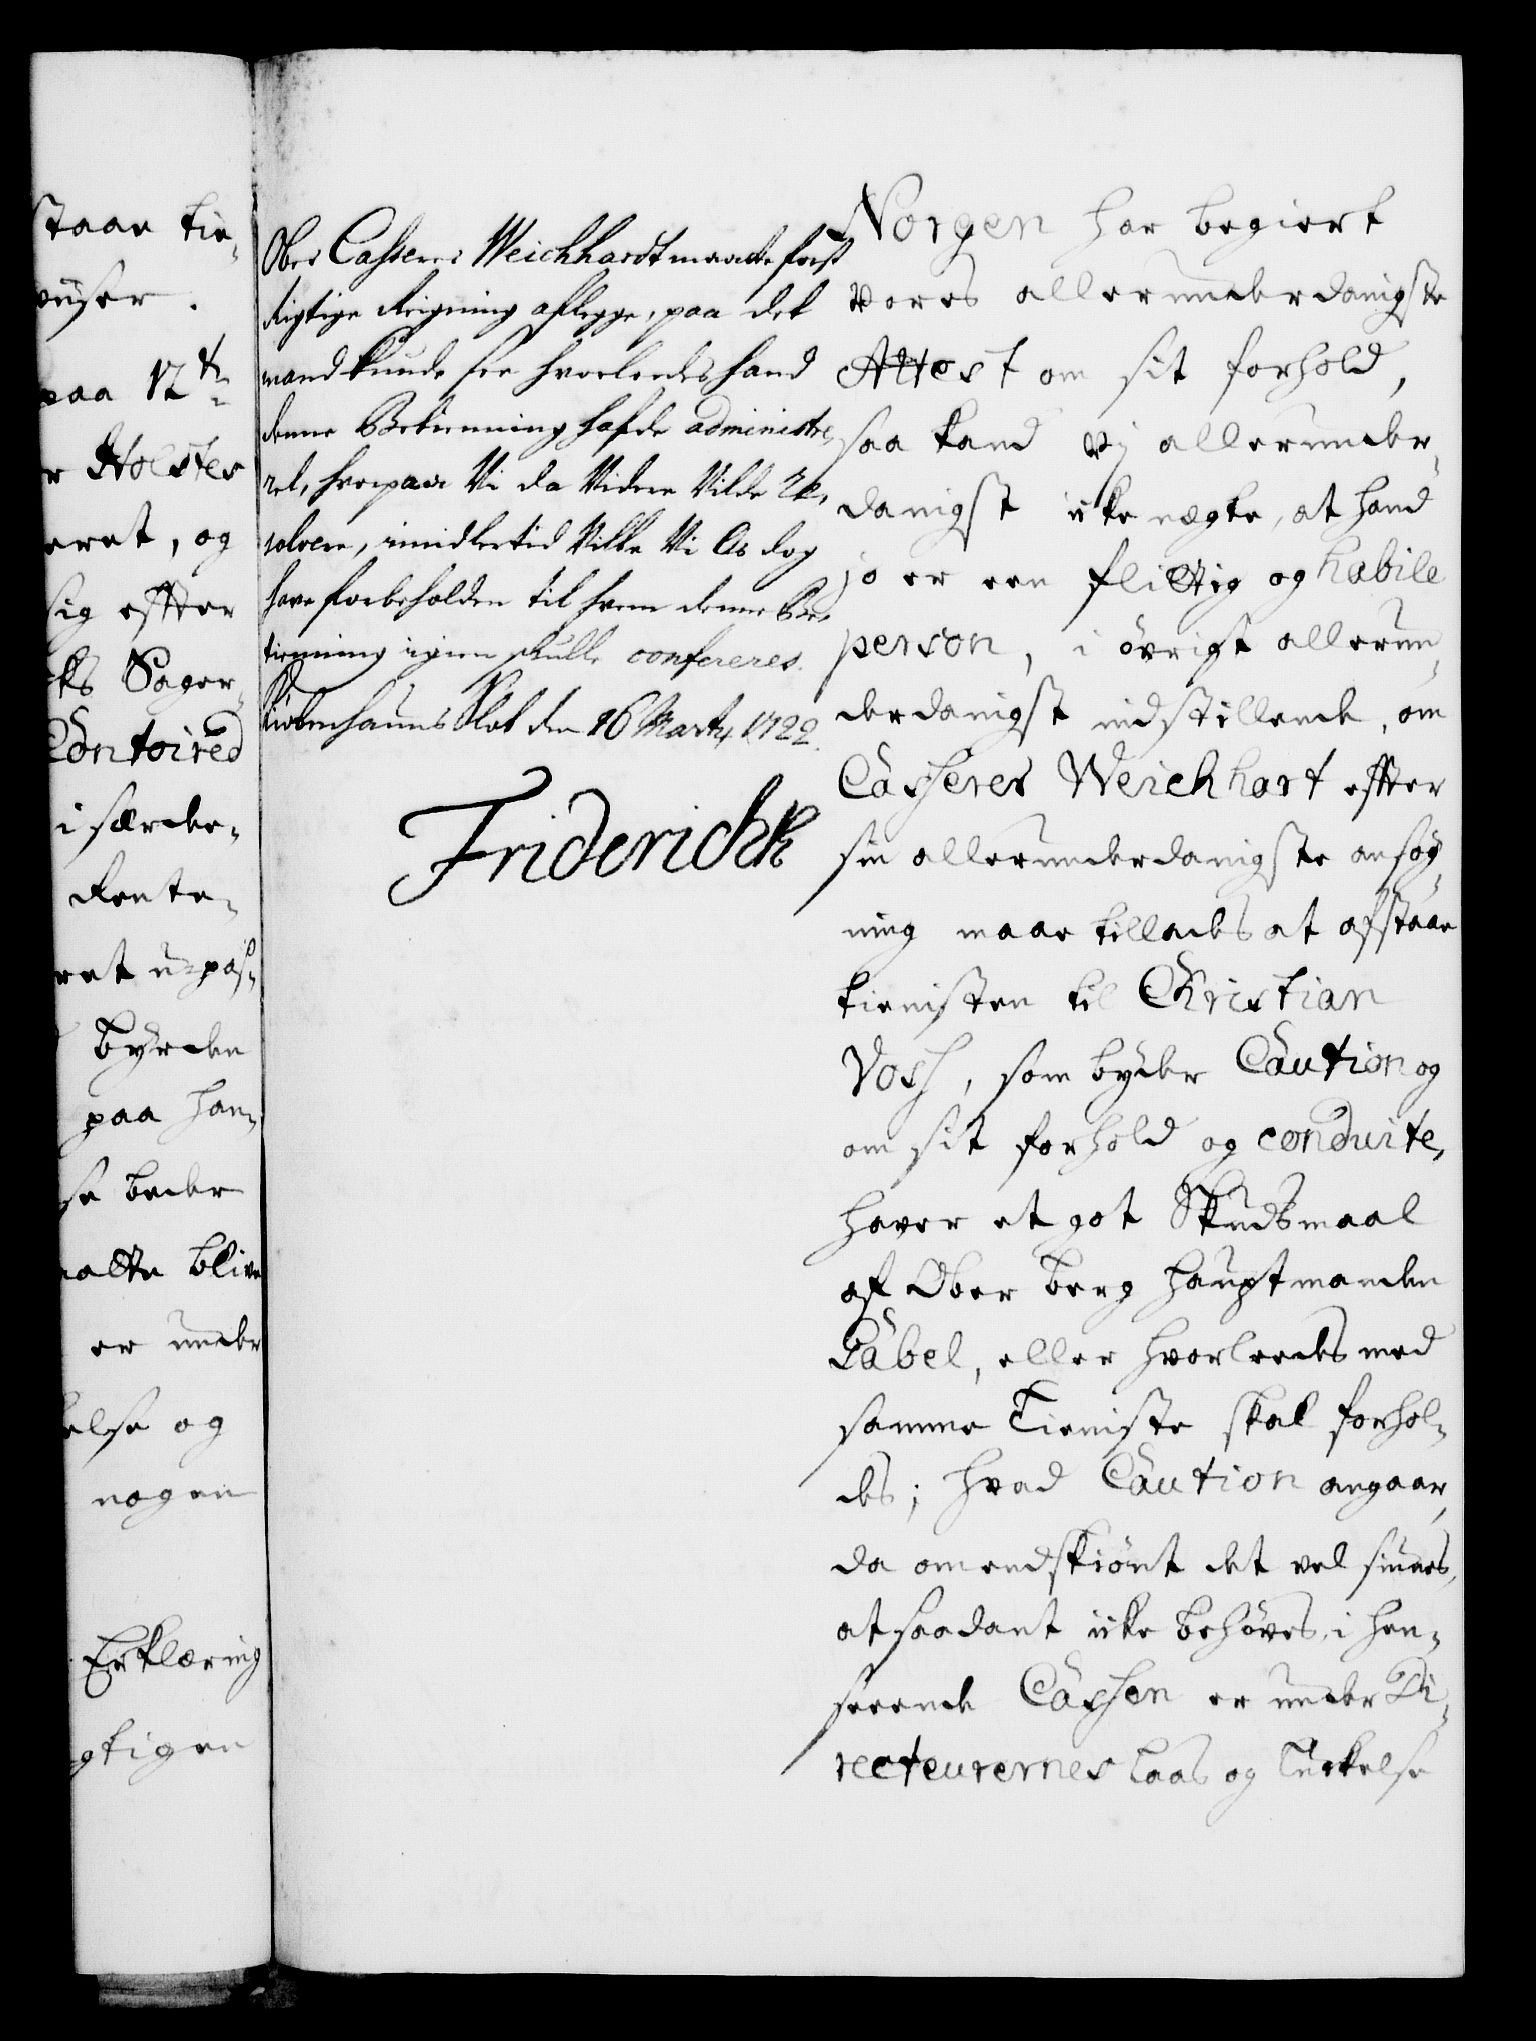 staae tie-
viiser.
paa 12te
r Holstes
eret, og
sig effter
ks Sager-
Contoired
i særde-
Rente-
ret u-pas-
byrden
paa han-
se beder
aatte blive
er under
else og
nogen
Erklæring
gtigen
Ober Casserer Weichhardt maatte først
Rigtige Reigning aflegge, paa det
mand kunde see hvorledes hand
denne Betienning hafde administre-
ret, hvorpaa Vi da Videre Vilde Re-
solvere, imidlertid Ville Vi Os dog
have forbeholden til hvem denne Be-
tienning igien skulle confereres.
Kiøbenhauns Slot den 16 Martij 1722.
Friderich R
Norgen har begiert
vores allerunderdanigste
Attest om sit forhold,
saa kand vj allerunder-
danigst icke nægte, at hand
jo er een flittig og habile
person, i övrigt allerun-
derdanigst indstillende, om
Casserer Weichhart effter
sin allerunderdanigste ansög-
ning maae tillades at afstaae
tienisten til Christian
Voss, som byder Caution og
om sit forhold og conduite,
haver et got Skudsmaal
af Ober berg hauptmanden
Täbel, eller hvorleedes med
samme Tieniste skal forhol-
des; hvad Caution angaar,
da omendskiönt det vel siunes,
at saadant icke behöves, i hen-
seende Cassen er under Di-
recteurernes Laas og Luckelse